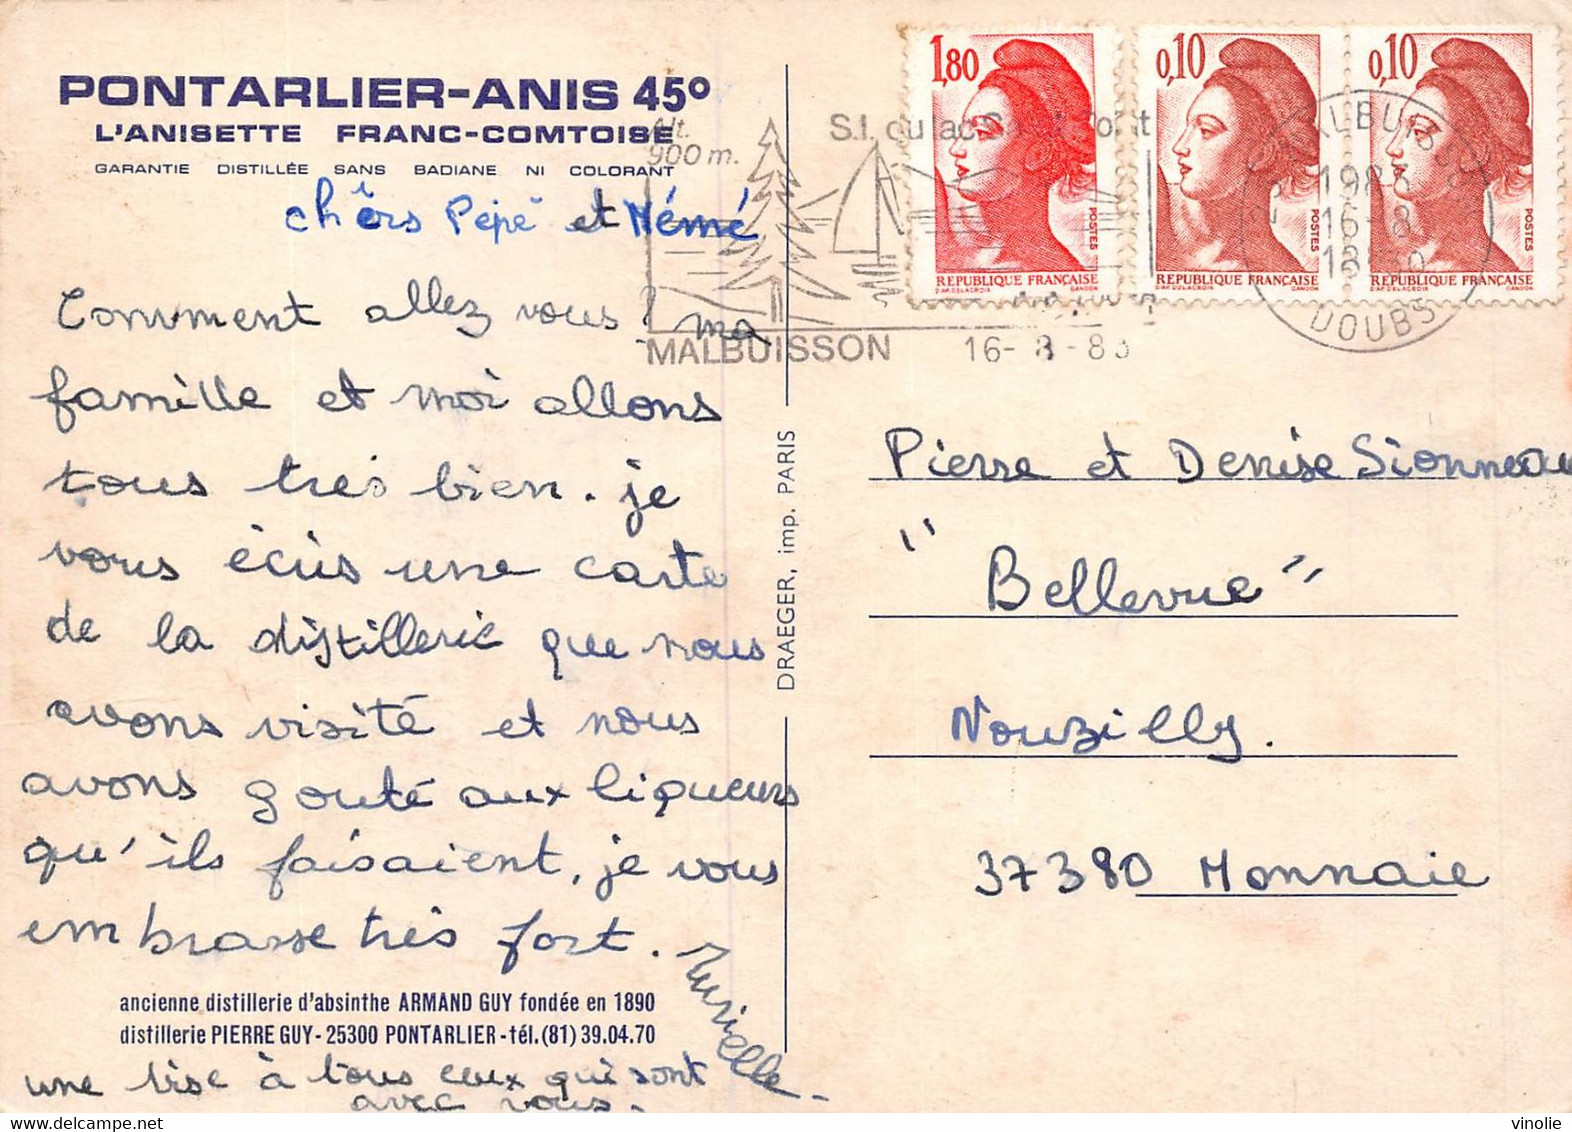 PONTARLIER-ANIS 45°
L'ANISETTE FRANC-COMTOISE
GARANTIE DISTILLÉE SANS BADIANE NI COLORANT
chèrs Pépé et Mémé
Comment allez vous ? ma
famille et moi allons
tous très bien. je
vous écris une carte
de la distillerie que nous
avons visité et nous
avons gouté aux liqueurs
qu'ils faisaient, je vous
embrasse très fort.
Murielle.
ancienne distillerie d'absinthe ARMAND GUY fondée en 1890
distillerie PIERRE GUY - 25300 PONTARLIER - tél. (81) 39.04.70
une bise à tous ceux qui sont
avec vous.
DRAEGER, imp. PARIS
Alt.
900 m.
S.I. du lac
MALBUISSON
16-8-83
1,80
POSTES
REPUBLIQUE FRANÇAISE
D'AP. DELACROIX GANDON
0,10
POSTES
REPUBLIQUE FRANÇAISE
D'AP. DELACROIX GANDON
0,10
POSTES
REPUBLIQUE FRANÇAISE
D'AP. DELACROIX GANDON
1983
16-8
DOUBS
Pierre et Denise Sionneau
"Bellevue"
Nouzilly.
37380 Monnaie
vinolie